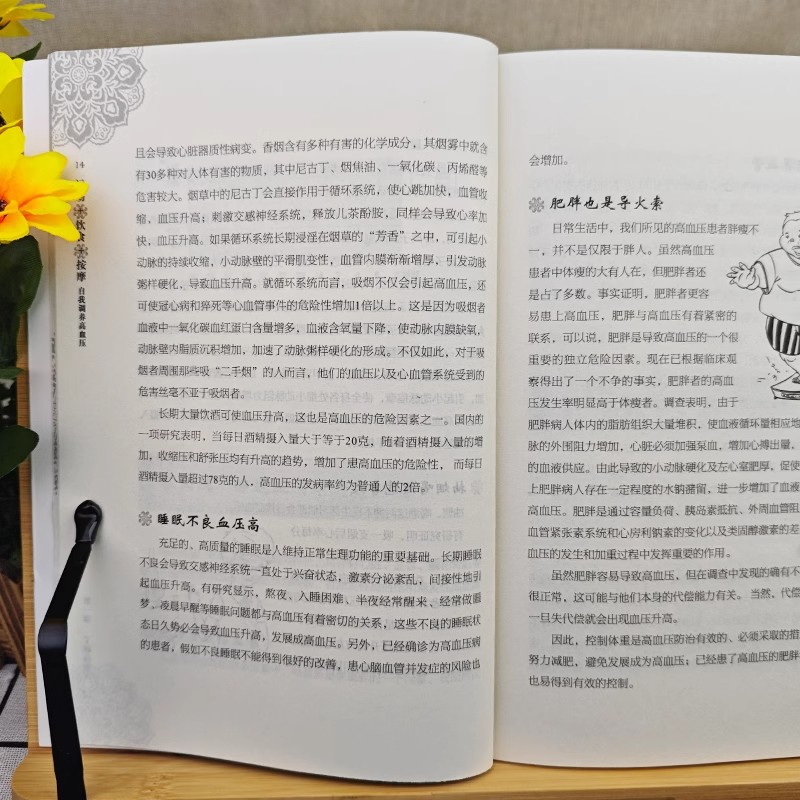 14
饮食
按摩
自我调养高血压
且会导致心脏器质性病变。香烟含有多种有害的化学成分，其烟雾中就含
有30多种对人体有害的物质，其中尼古丁、烟焦油、一氧化碳、丙烯醛等
危害较大。烟草中的尼古丁会直接作用于循环系统，使心跳加快，血管收
缩，血压升高；刺激交感神经系统，释放儿茶酚胺，同样会导致心率加
快，血压升高。如果循环系统长期浸淫在烟草的“芳香”之中，可引起小
动脉的持续收缩，小动脉壁的平滑肌变性，血管内膜渐渐增厚，引发动脉
粥样硬化，导致血压升高。就循环系统而言，吸烟不仅会引起高血压，还
可使冠心病和猝死等心血管事件的危险性增加1倍以上。这是因为吸烟者
血液中一氧化碳血红蛋白含量增多，血液含氧量下降，使动脉内膜缺氧，
动脉壁内脂质沉积增加，加速了动脉粥样硬化的形成。不仅如此，对于吸
烟者周围那些吸“二手烟”的人而言，他们的血压以及心血管系统受到的
危害丝毫不亚于吸烟者。
长期大量饮酒可使血压升高，这也是高血压的危险因素之一。国内的
一项研究表明，当每日酒精摄入量大于等于20克，随着酒精摄入量的增
加，收缩压和舒张压均有升高的趋势，增加了患高血压的危险性， 而每日
酒精摄入量超过78克的人，高血压的发病率约为普通人的2倍。
睡眠不良血压高
充足的、高质量的睡眠是人维持正常生理功能的重要基础。长期睡眠
不良会导致交感神经系统一直处于兴奋状态，激素分泌紊乱，间接性地引
起血压升高。有研究显示，熬夜、入睡困难、半夜经常醒来、经常做噩
梦、凌晨早醒等睡眠问题都与高血压有着密切的关系，这些不良的睡眠状
态日久势必会导致血压升高，发展成高血压。另外，已经确诊为高血压病
的患者，假如不良睡眠不能得到很好的改善，患心脑血管并发症的风险也
会增加。
肥胖也是导火索
日常生活中，我们所见的高血压患者胖瘦不
一，并不是仅限于胖人。虽然高血压
患者中体瘦的大有人在，但肥胖者还
是占了多数。事实证明，肥胖者更容
易患上高血压，肥胖与高血压有着紧密的
联系，可以说，肥胖是导致高血压的一个很
重要的独立危险因素。现在已根据临床观
察得出了一个不争的事实，肥胖者的高血
压发生率明显高于体瘦者。调查表明，由于
肥胖病人体内的脂肪组织大量堆积，使血液循环量相应地
脉的外围阻力增加，心脏必须加强泵血，增加心搏出量，
的血液供应。由此导致的小动脉硬化及左心室肥厚，促使
上肥胖病人存在一定程度的水钠潴留，进一步增加了血液
高血压。肥胖是通过容量负荷、胰岛素抵抗、外周血管阻
血管紧张素系统和心房利钠素的变化以及类固醇激素的差
血压的发生和加重过程中发挥重要的作用。
虽然肥胖容易导致高血压，但在调查中发现的确有不
很正常，这可能与他们本身的代偿能力有关。当然，代偿
一旦失代偿就会出现血压升高。
因此，控制体重是高血压防治有效的、必须采取的措
努力减肥，避免发展成为高血压；已经患了高血压的肥胖
也易得到有效的控制。